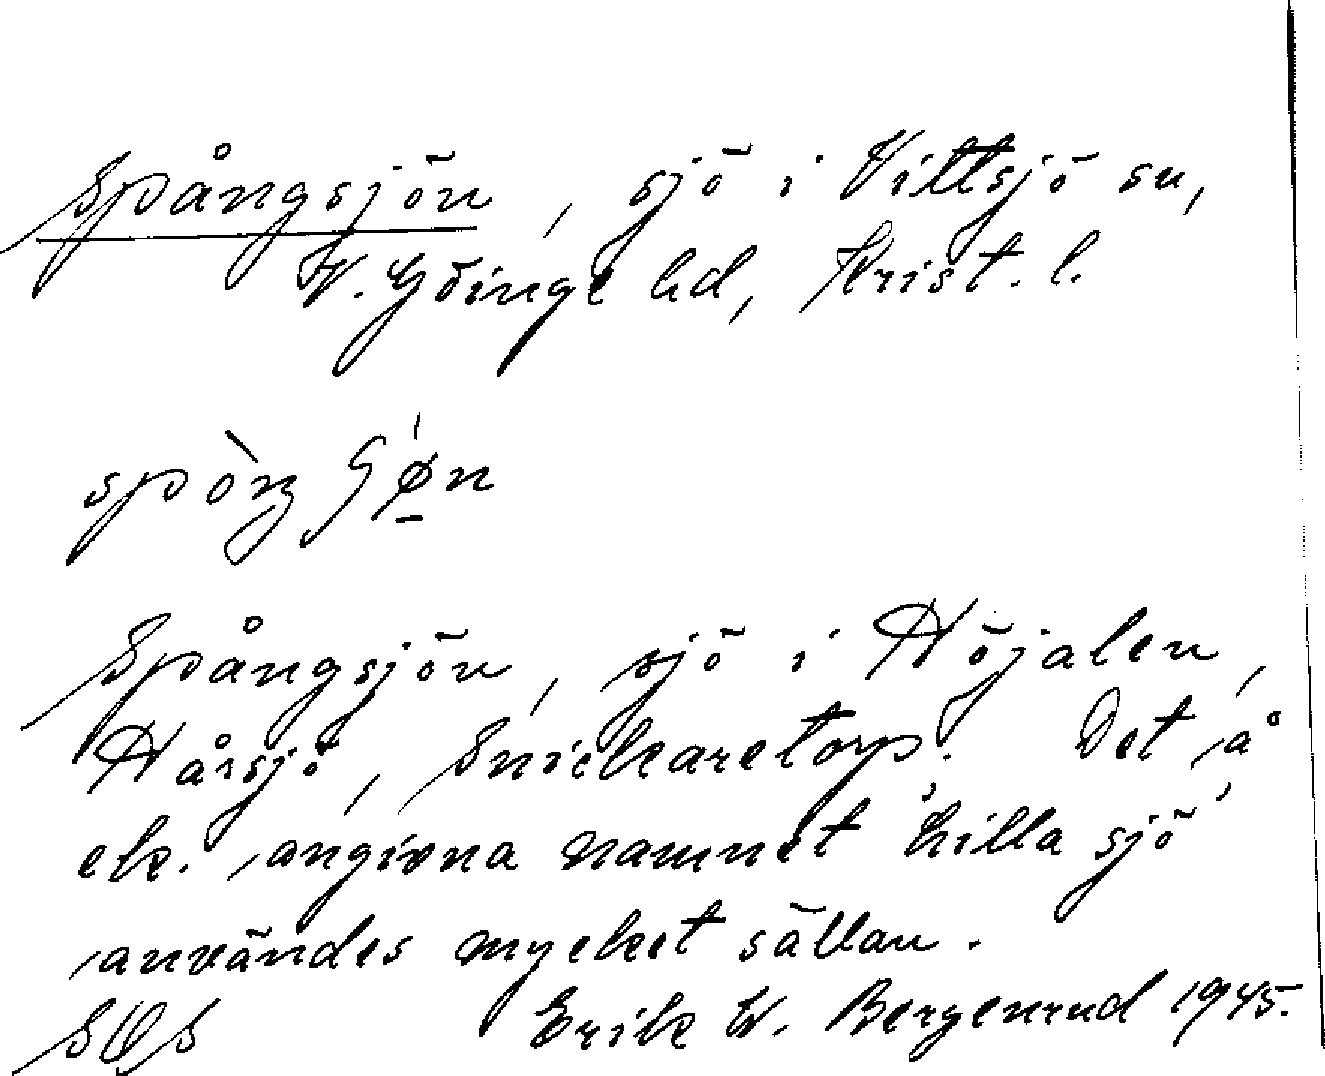 Spångsjön, sjö i Vittsjö sn,
V. Göinge hd, Krist. l.
Spångsjön, sjö i Höjalen,
Hårsjö, Snickaretorp. Det å
ek. angivna namnet 'Lilla sjö'
användes mycket sällan.
SOS Erik W. Bergenrud 1945.